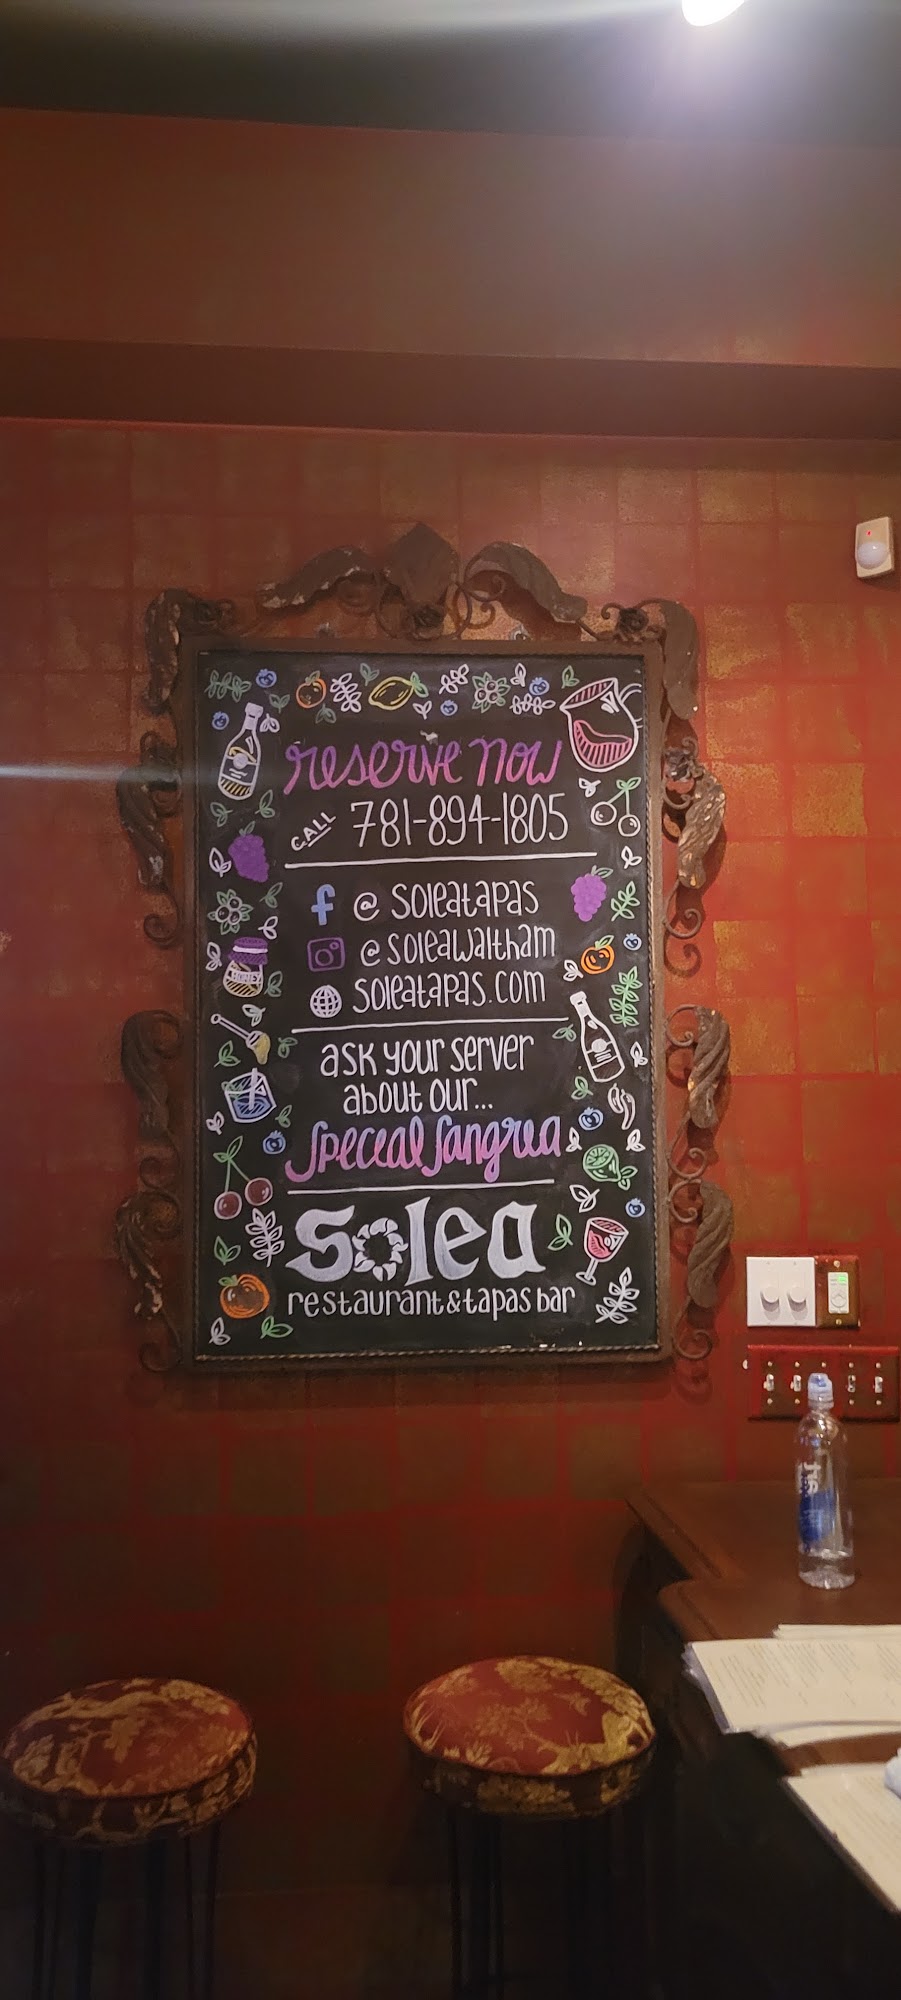 reserve now
CALL 781-894-1805
f @ soleatapas
@soleawaltham
soleatapas.com
ask your server
about our...
Special Sangria
solea
restaurant&tapas bar
HONEY